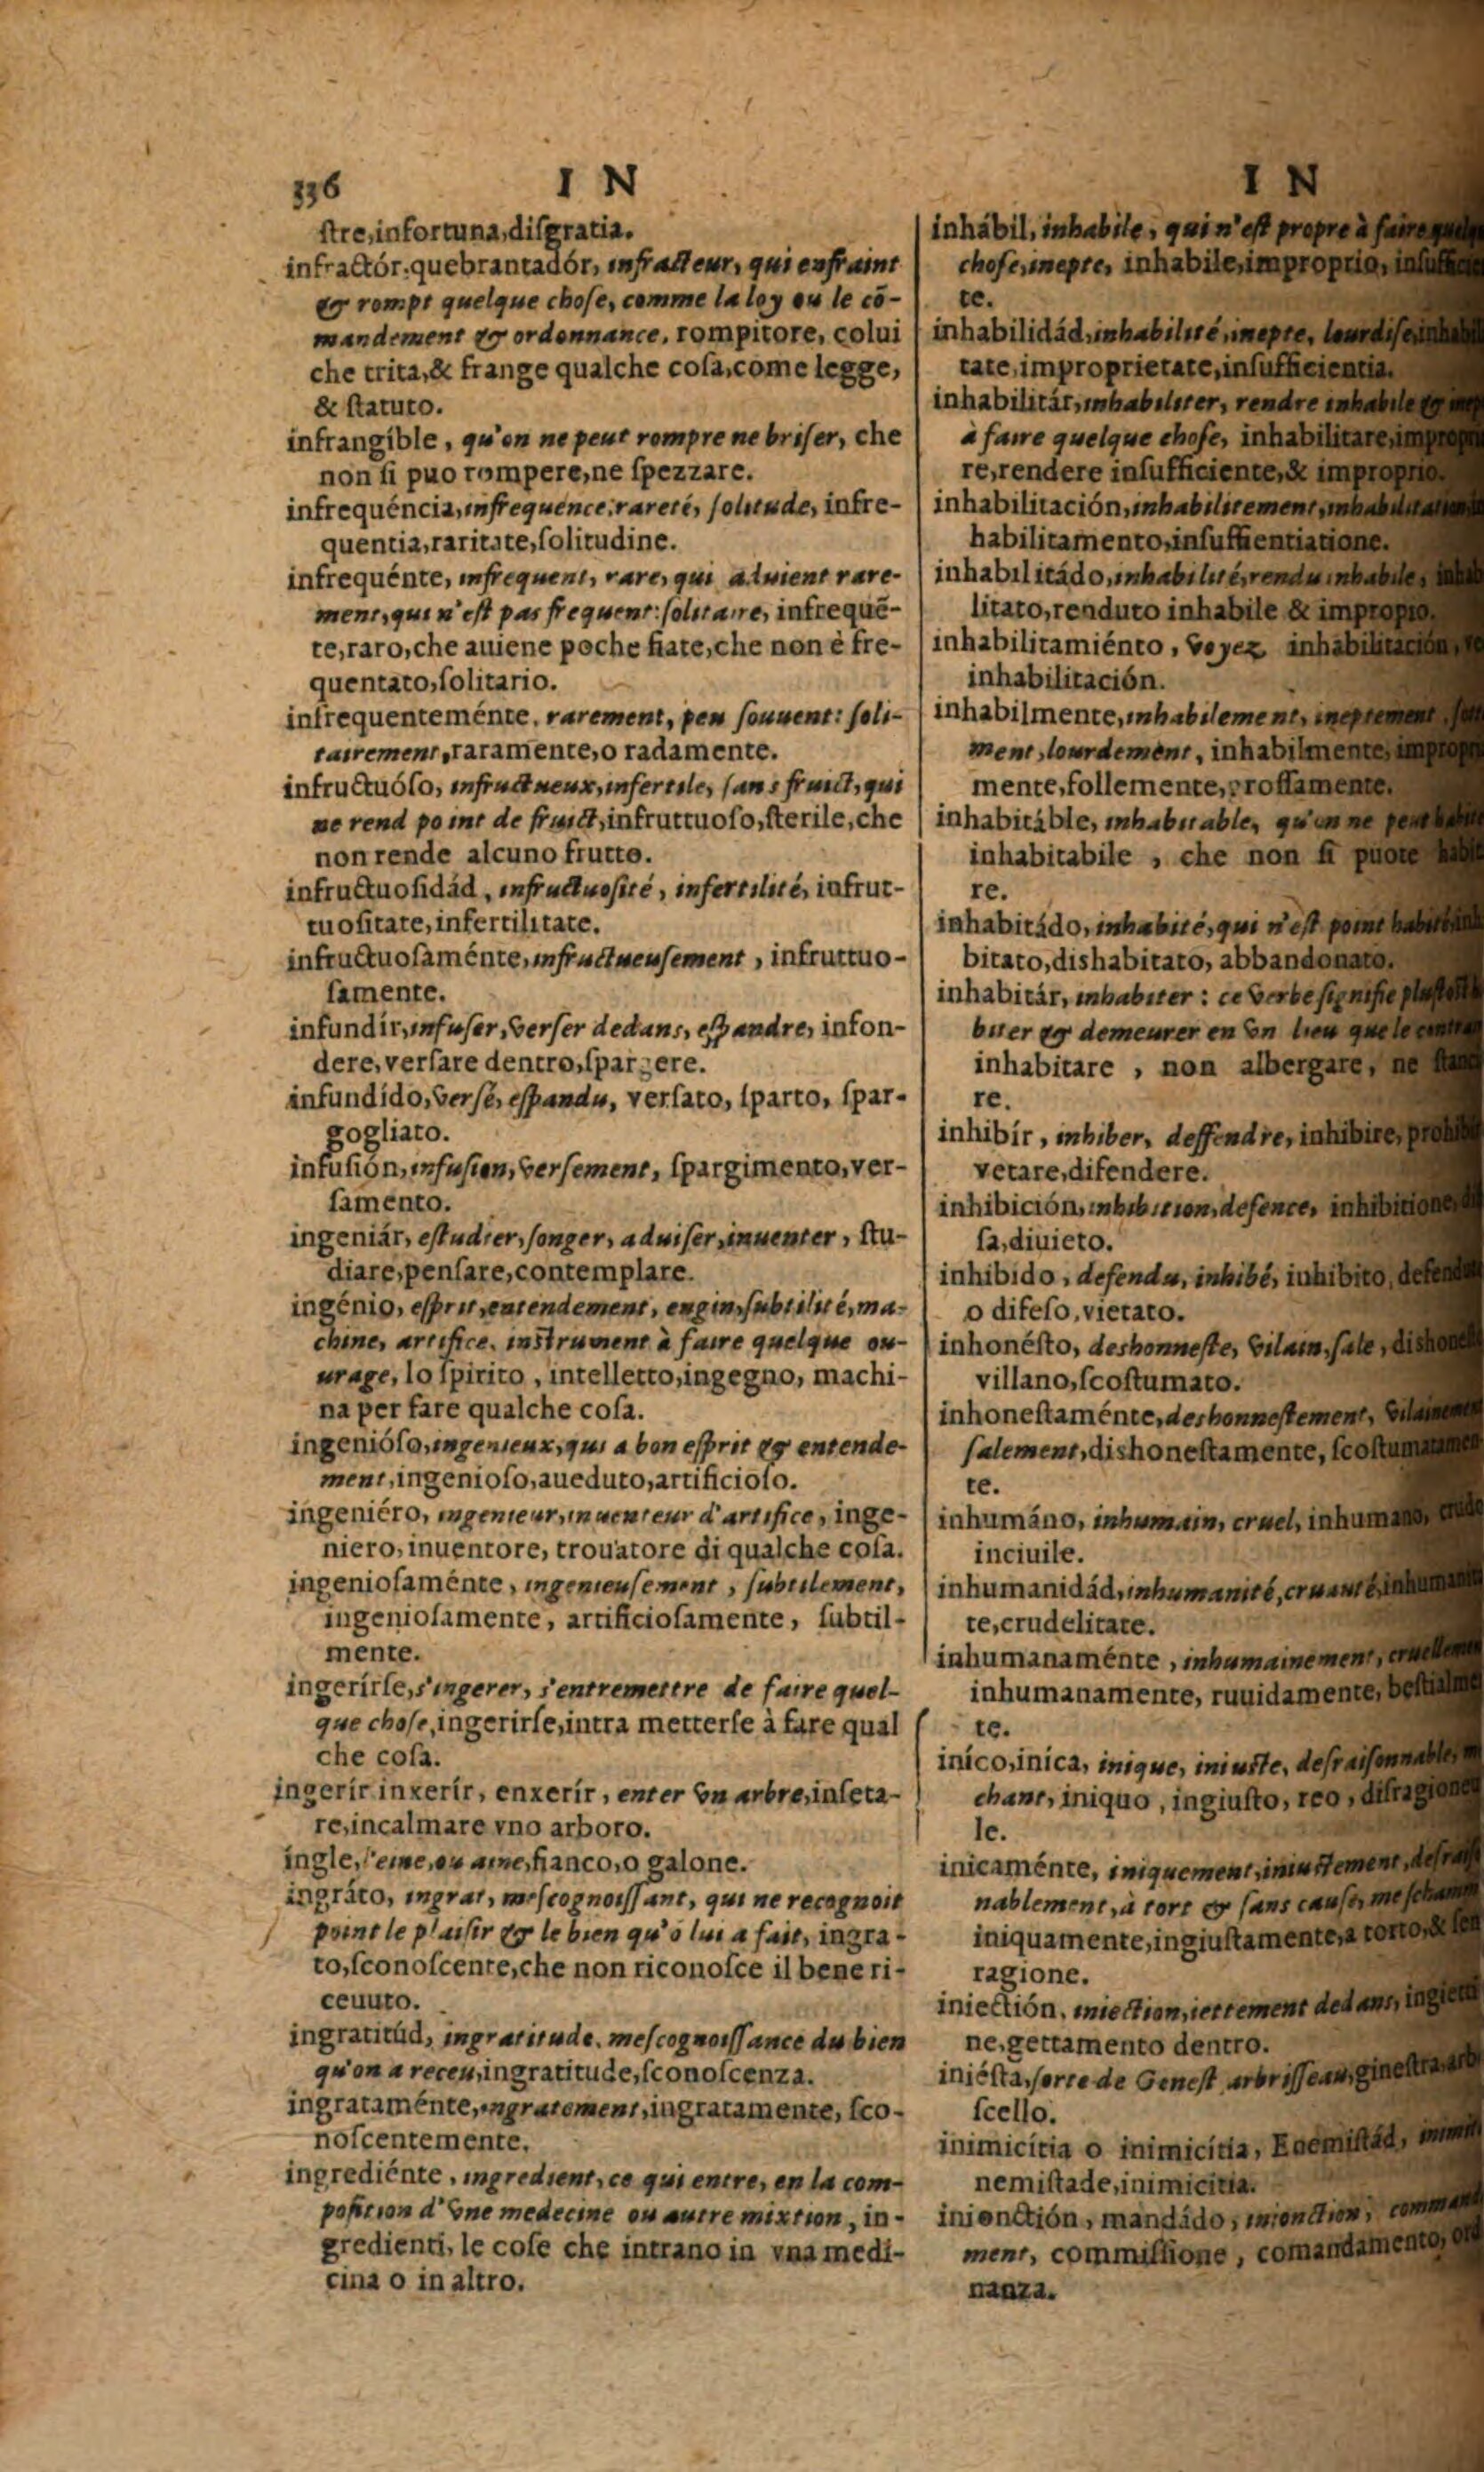 336 I N
ſtre,infortuna,diſgratia.
infractór,quebrantadór, infracteur, qui enfraint
& rompt quelque choſe, comme la loy ou le cō-
mandement & ordonnance, rompitore, colui
che trita,& frange qualche coſa,come legge,
& ſtatuto.
infrangíble, qu'on ne peut rompre ne briſer, che
non ſi puo rompere,ne ſpezzare.
infrequéncia,infrequence,rareté, ſolitude, infre-
quentia,raritate,ſolitudine.
infrequénte, infrequent, rare, qui aduient rare-
ment,qui n'eſt pas frequent:ſolitaire, infrequē-
te,raro,che auiene poche fiate,che non è fre-
quentato,ſolitario.
infrequenteménte, rarement, peu ſouuent: ſoli-
tairement,raramente,o radamente.
infructuóſo, infructueux,infertile, ſans fruict,qui
ne rend point de fruict,infruttuoſo,ſterile,che
non rende alcuno frutto.
infructuoſidád, infructuoſité, infertilité, infrut-
tuoſitate,infertilitate.
infructuoſaménte,infructueuſement, infruttuo-
ſamente.
infundír,infuſer,verſer dedans, eſpandre, infon-
dere,verſare dentro,ſpargere.
infundído,verſé, eſpandu, verſato, ſparto, ſpar-
gogliato.
infuſión,infuſion,verſement, ſpargimento,ver-
ſamento.
ingeniár, eſtudier,ſonger, aduiſer,inuenter, ſtu-
diare,penſare,contemplare.
ingénio, eſprit,entendement, engin,ſubtilité,ma-
chine, artifice, inſtrument à faire quelque ou-
urage, lo ſpirito, intelletto,ingegno, machi-
na per fare qualche coſa.
ingenióſo,ingenieux,qui a bon eſprit & entende-
ment,ingenioſo,aueduto,artificioſo.
ingeniéro, ingenieur,inuenteur d'artifice, inge-
niero,inuentore, trouatore di qualche coſa.
ingenioſaménte, ingenieuſement, ſubtilement,
ingenioſamente, artificioſamente, ſubtil-
mente.
ingerírſe,s'ingerer, s'entremettre de faire quel-
que choſe,ingerirſe,intra metterſe à fare qual
che coſa.
ingerír inxerír, enxerír, enter vn arbre,inſeta-
re,incalmare vno arboro.
íngle,l'eine,ou aine,fianco,o galone.
ingráto, ingrat, meſcognoiſſant, qui ne recognoit
point le plaiſir & le bien qu'ō lui a fait, ingra-
to,ſconoſcente,che non riconoſce il bene ri-
ceuuto.
ingratitúd, ingratitude, meſcognoiſſance du bien
qu'on a receu,ingratitude,ſconoſcenza.
ingrataménte,ingratement,ingratamente, ſco-
noſcentemente.
ingrediénte, ingredient, ce qui entre, en la com-
poſition d'vne medecine ou autre mixtion, in-
gredienti, le coſe che intrano in vna medi-
cina o in altro.
I N
inhábil, inhabile, qui n'eſt propre à faire
choſe,inepte, inhabile,improprio,
te.
inhabilidád,inhabilité,inepte, lourdiſe,
tate,improprietate,inſufficientia.
inhabilitár,inhabiliter, rendre inhabile &
à faire quelque choſe, inhabilitare,
re,rendere inſufficiente,& improprio.
inhabilitación,inhabilitement,
habilitamento,inſuffientiatione.
inhabilitádo,inhabilité,rendu inhabile,
litato,renduto inhabile & impropio.
inhabilitamiénto, voyez inhabilitación,
inhabilitación.
inhabilmente,inhabilement, ineptement,
ment,lourdement, inhabilmente,
mente,follemente,groſſamente.
inhabitáble, inhabitable, qu'on ne peut
inhabitabile, che non ſi puote
re.
inhabitádo, inhabité,qui n'eſt point
bitato,dishabitato, abbandonato.
inhabitár, inhabiter: ce verbe ſignifie
biter & demeurer en vn lieu que le
inhabitare, non albergare, ne
re.
inhibír, inhiber, deffendre, inhibire,
vetare,difendere.
inhibición,inhibition,defence, inhibitione,
ſa,diuieto.
inhibido, defendu, inhibé, inhibito,
o difeſo,vietato.
inhonéſto, deshonneſte, vilain,ſale,
villano,ſcoſtumato.
inhoneſtaménte,deshonneſtement,
ſalement,dishoneſtamente,
te.
inhumáno, inhumain, cruel, inhumano,
inciuile.
inhumanidád,inhumanité,cruauté,
te,crudelitate.
inhumanaménte, inhumainement,
inhumanamente, ruuidamente,
te.
iníco,iníca, inique, iniuſte, deſraiſonnable,
chant, iniquo, ingiuſto, reo,
le.
inicaménte, iniquement,iniuſtement,
nablement,à tort & ſans cauſe,
iniquamente,ingiuſtamente,a torto,&
ragione.
iniectión, iniection,iettement dedans,
ne,gettamento dentro.
iniéſta,ſorte de Geneſt arbriſſeau,gineſtra,
ſcello.
inimicítia o inimicítia, Enemiſtád,
nemiſtade,inimicitia.
inionctión, mandádo, inionction,
ment, commiſſione, comandamento,
nanza.